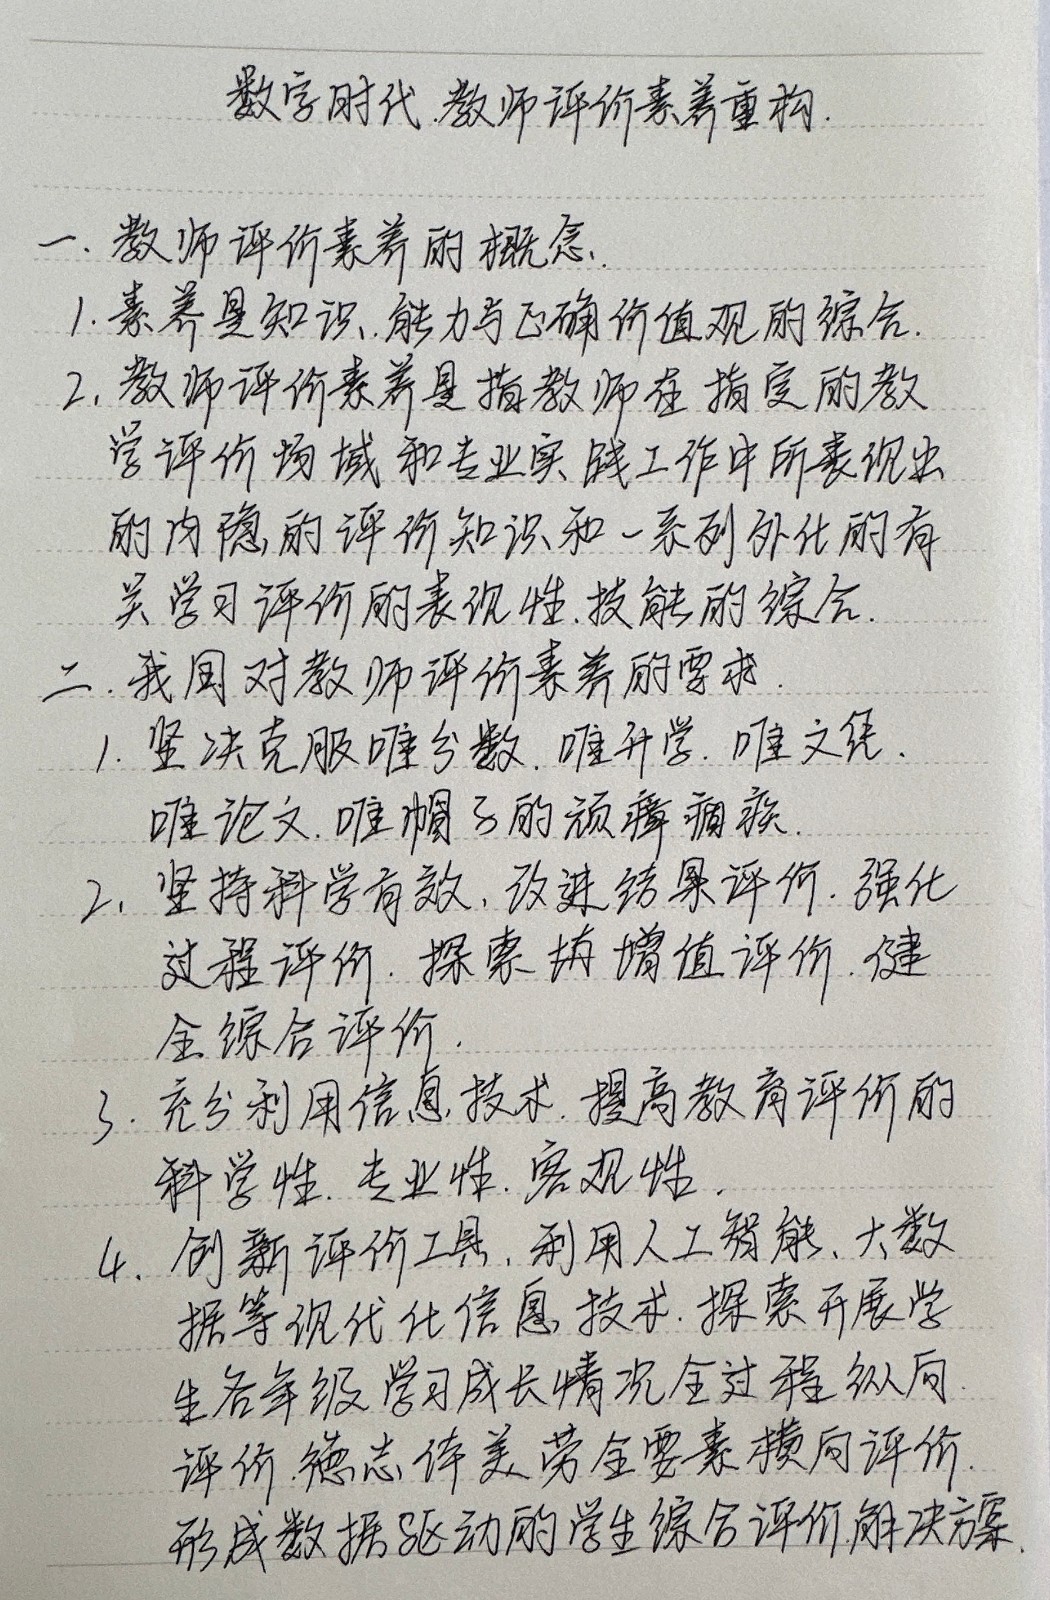 数字时代.教师评价素养重构.
一.教师评价素养的概念.
1.素养是知识、能力与正确价值观的综合.
2.教师评价素养是指教师在指定的教
学评价场域和专业实践工作中所表现出
的内隐的评价知识和一系列外化的有
关学习评价的表现性.技能的综合.
二.我国对教师评价素养的要求.
1.坚决克服唯分数.唯升学.唯文凭.
唯论文.唯帽子的顽瘴痼疾.
2.坚持科学有效.改进结果评价.强化
过程评价.探索增值评价.健
全综合评价.
3.充分利用信息技术.提高教育评价的
科学性.专业性.客观性.
4.创新评价工具.利用人工智能、大数
据等现代化信息技术.探索开展学
生各年级学习成长情况全过程纵向
评价.德志体美劳全要素横向评价.
形成数据驱动的学生综合评价解决方案.